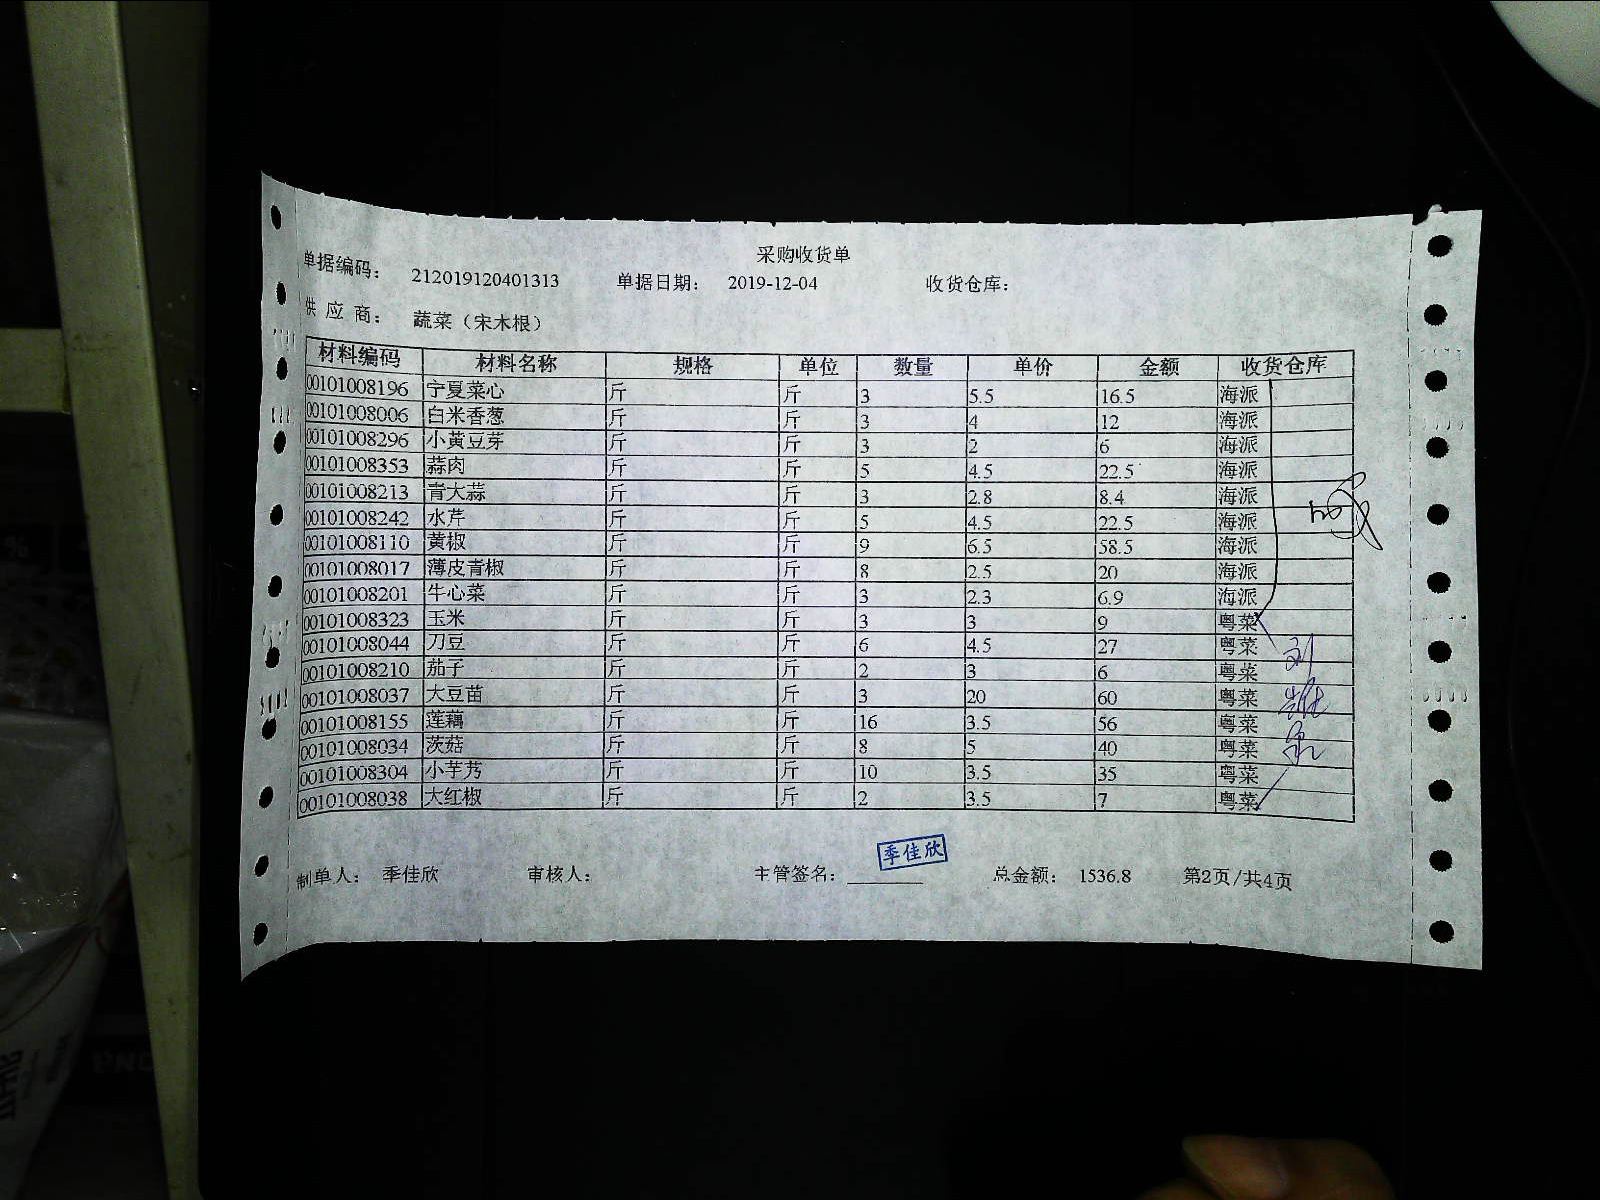 采购收货单
单据编码： 212019120401313 单据日期： 2019-12-04 收货仓库：
供 应 商： 蔬菜（宋木根）
材料编码 材料名称 规格 单位 数量 单价 金额 收货仓库
00101008196 宁夏菜心 斤 斤 3 5.5 16.5 海派
00101008006 白米香葱 斤 斤 3 4 12 海派
00101008296 小黄豆芽 斤 斤 3 2 6 海派
00101008353 蒜肉 斤 斤 5 4.5 22.5 海派
00101008213 青大蒜 斤 斤 3 2.8 8.4 海派
00101008242 水芹 斤 斤 5 4.5 22.5 海派
00101008110 黄椒 斤 斤 9 6.5 58.5 海派
00101008017 薄皮青椒 斤 斤 8 2.5 20 海派
00101008201 牛心菜 斤 斤 3 2.3 6.9 海派
00101008323 玉米 斤 斤 3 3 9 粤菜
00101008044 刀豆 斤 斤 6 4.5 27 粤菜
00101008210 茄子 斤 斤 2 3 6 粤菜
00101008037 大豆苗 斤 斤 3 20 60 粤菜
00101008155 莲藕 斤 斤 16 3.5 56 粤菜
00101008034 茨菇 斤 斤 8 5 40 粤菜
00101008304 小芋艿 斤 斤 10 3.5 35 粤菜
00101008038 大红椒 斤 斤 2 3.5 7 粤菜
季佳欣
制单人： 季佳欣 审核人： 主管签名： 总金额： 1536.8 第2页/共4页